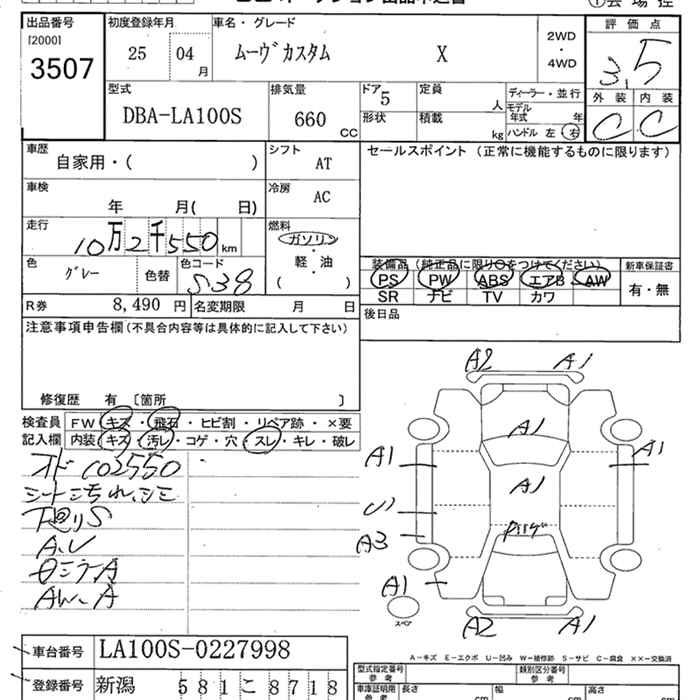 出品番号 初度登録年月 車名・グレード 評価点
[2000]
3507 25 04 月 ムーヴカスタム X 2WD・4WD 3.5
型式 排気量 ドア 5 定員 人 ディーラー・並行 外装 内装
DBA-LA100S 660 CC 形状 積載 kg モデル年式 年 C C
ハンドル 左 右
車歴 シフト セールスポイント (正常に機能するものに限ります)
自家用・( ) AT
車検 冷房
年 月( 日) AC
走行 燃料
10万2千550 km ガソリン・軽・油
色 色コード ( )
グレー 色替 S38
装備品 (純正品に限り○をつけてください) 新車保証書
PS PW ABS エアB AW 有・無
SR ナビ TV カワ
R券 8,490 円 名変期限 月 日
後日品
注意事項申告欄 (不具合内容等は具体的に記入して下さい)
修復歴 有 [箇所 ]
検査員 FW キズ・飛石・ヒビ割・リペア跡・×要
記入欄 内装 キズ・汚レ・コゲ・穴・スレ・キレ・破レ
オド102550
シート汚れ、シミ
下回りS
A.U
AW-A
A2 A1
A1
A1 A1
A1
U1
A3
A1
スペア
A2 A1
A-キズ E-エクボ U-凹み W-補修跡 S-サビ C-腐食 ××-交換済
車台番号 LA100S-0227998
登録番号 新潟 581こ8718
型式指定番号 参考 類別区分番号 参考
車庫証明用 参考 長さ cm 幅 cm 高さ cm